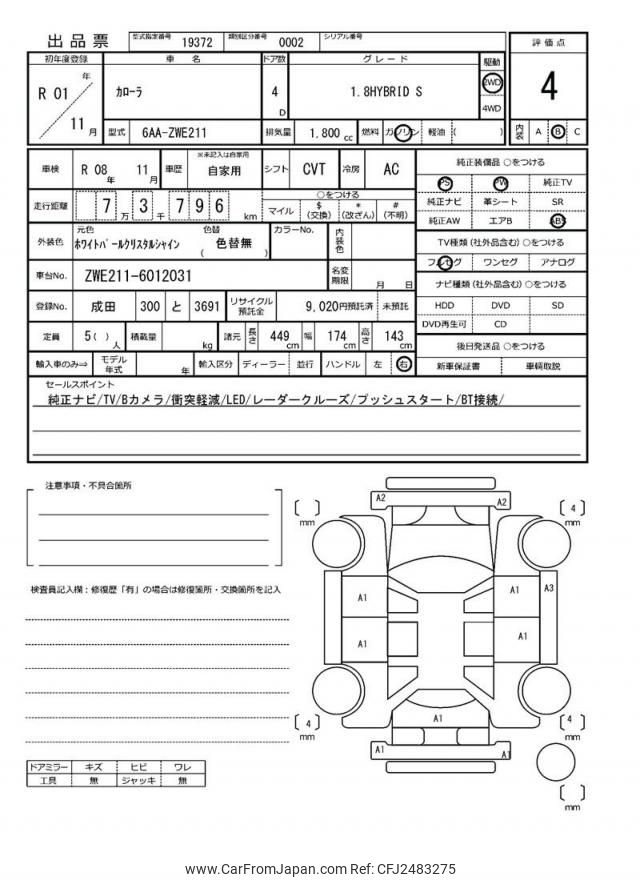 出品票
型式指定番号 19372 類別区分番号 0002 シリアル番号
初年度登録 車名 ドア数 グレード 駆動 評価点
R 01 年 11 月
カローラ 4 D 1.8HYBRID S 2WD 4WD
4
型式 6AA-ZWE211 排気量 1.800 cc 燃料 ガソリン 軽油 ( )
内装 A B C
車検 R 08 年 11 月 車歴 ※未記入は自家用 自家用 シフト CVT 冷房 AC
走行距離 7 万 3 千 7 9 6 km
○をつける
マイル $ (交換) * (改ざん) # (不明)
外装色 元色 ホワイトパールクリスタルシャイン 色替 ( 色替無 ) カラーNo. 内装色
車台No. ZWE211-6012031 名変期限 月 日
登録No. 成田 300 と 3691 リサイクル預託金 9,020円預託済 未預託
定員 5( ) 人 積載量 kg 諸元 長さ 449 cm 幅 174 cm 高さ 143 cm
輸入車のみ⇒ モデル年式 年 輸入区分 ディーラー 並行 ハンドル 左 右
純正装備品 ○をつける
PS PW 純正TV
純正ナビ 革シート SR
純正AW エアB ABS
TV種類 (社外品含む) ○をつける
フルセグ ワンセグ アナログ
ナビ種類 (社外品含む) ○をつける
HDD DVD SD
DVD再生可 CD
後日発送品 ○をつける
新車保証書 車輌取説
セールスポイント
純正ナビ/TV/Bカメラ/衝突軽減/LED/レーダークルーズ/プッシュスタート/BT接続/
注意事項・不具合箇所
検査員記入欄：修復歴「有」の場合は修復箇所・交換箇所を記入
ドアミラー キズ ヒビ ワレ
工具 無 ジャッキ 無
A2 A2
[ ] mm
[ 4 ] mm
A1 A1 A3
A1 A1
A1
[ 4 ] mm
[ 4 ] mm
A1 A1
[ ] mm
www.CarFromJapan.com Ref: CFJ2483275